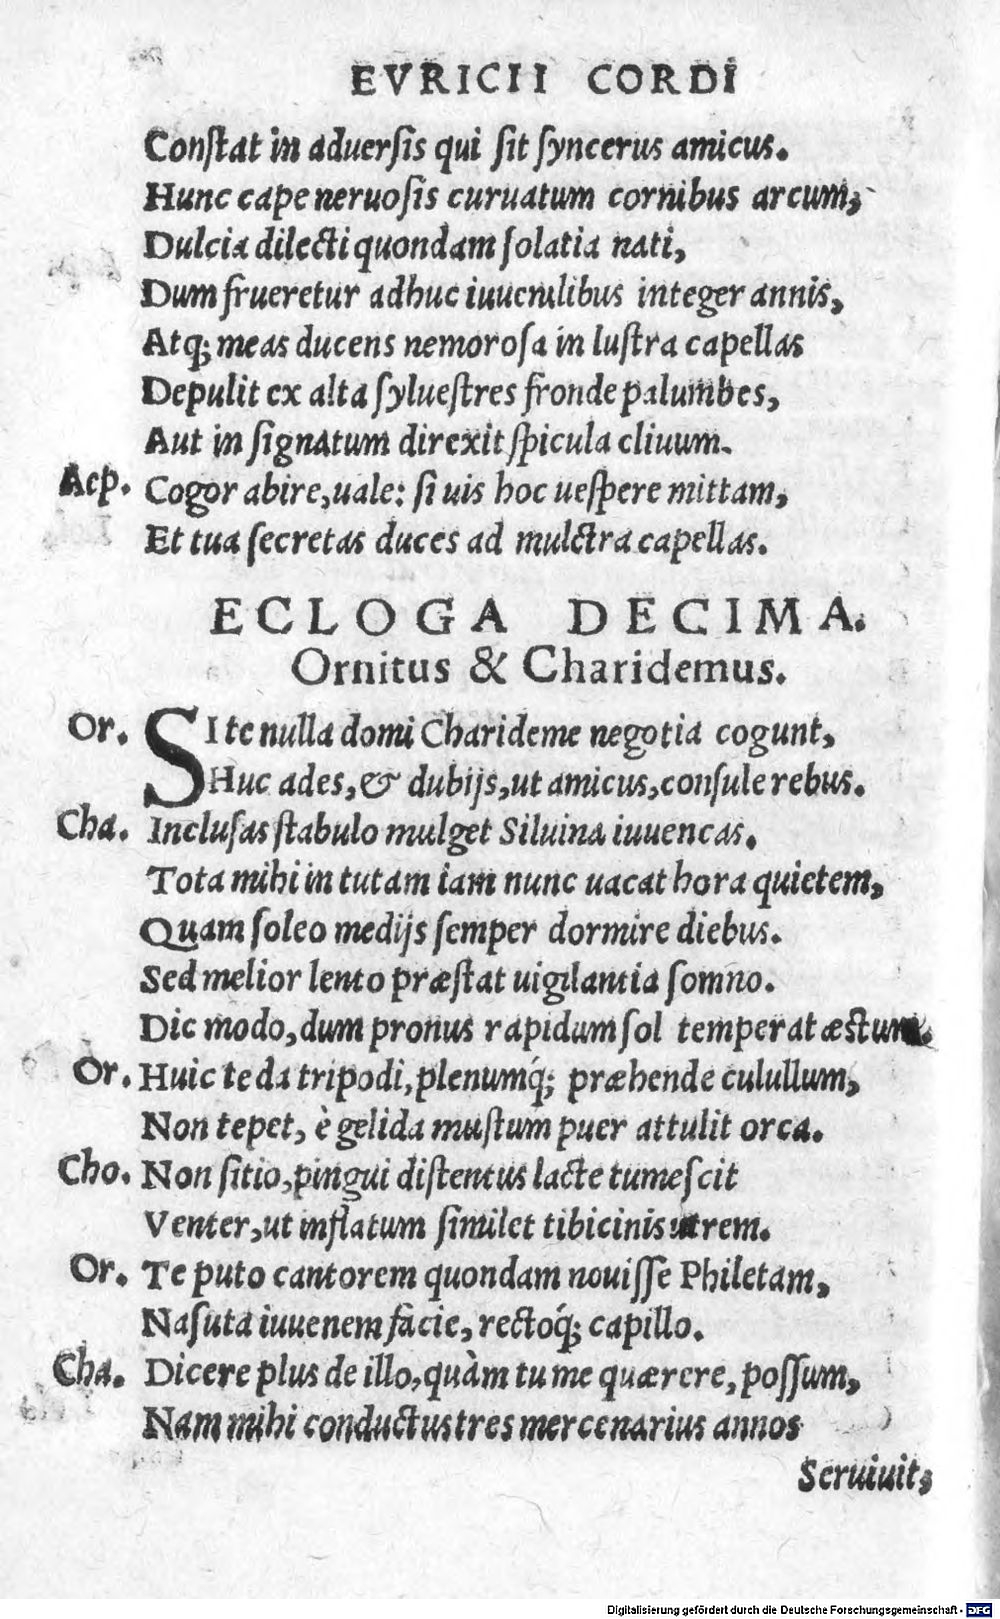 EVRICII CORDI
Conſtat in aduerſis qui ſit ſyncerus amicus.
Hunc cape neruoſis curuatum cornibus arcum,
Dulcia dilecti quondam ſolatia nati,
Dum frueretur adhuc iuuenilibus integer annis,
Atq; meas ducens nemoroſa in luſtra capellas
Depulit ex alta ſylueſtres fronde palumbes,
Aut in ſignatum direxit ſpicula cliuum.
Aep. Cogor abire, uale: ſi uis hoc ueſpere mittam,
Et tua ſecretas duces ad mulctra capellas.
ECLOGA DECIMA.
Ornitus & Charidemus.
Or. SI te nulla domi Charideme negotia cogunt,
Huc ades, & dubijs, ut amicus, conſule rebus.
Cha. Incluſas ſtabulo mulget Siluina iuuencas.
Tota mihi in tutam iam nunc uacat hora quietem,
Quam ſoleo medijs ſemper dormire diebus.
Sed melior lento præſtat uigilantia ſomno.
Dic modo, dum pronus rapidum ſol temperat æstum.
Or. Huic te da tripodi, plenumq́; præhende culullum,
Non tepet, è gelida muſtum puer attulit orca.
Cho. Non ſitio, pingui diſtentus lacte tumeſcit
Venter, ut inflatum ſimilet tibicinis utrem.
Or. Te puto cantorem quondam nouiſſe Philetam,
Naſuta iuuenem facie, rectoq́; capillo.
Cha. Dicere plus de illo, quàm tu me quærere, poſſum,
Nam mihi conductus tres mercenarius annos
Seruiuit,
Digitalisierung gefördert durch die Deutsche Forschungsgemeinschaft - DFG